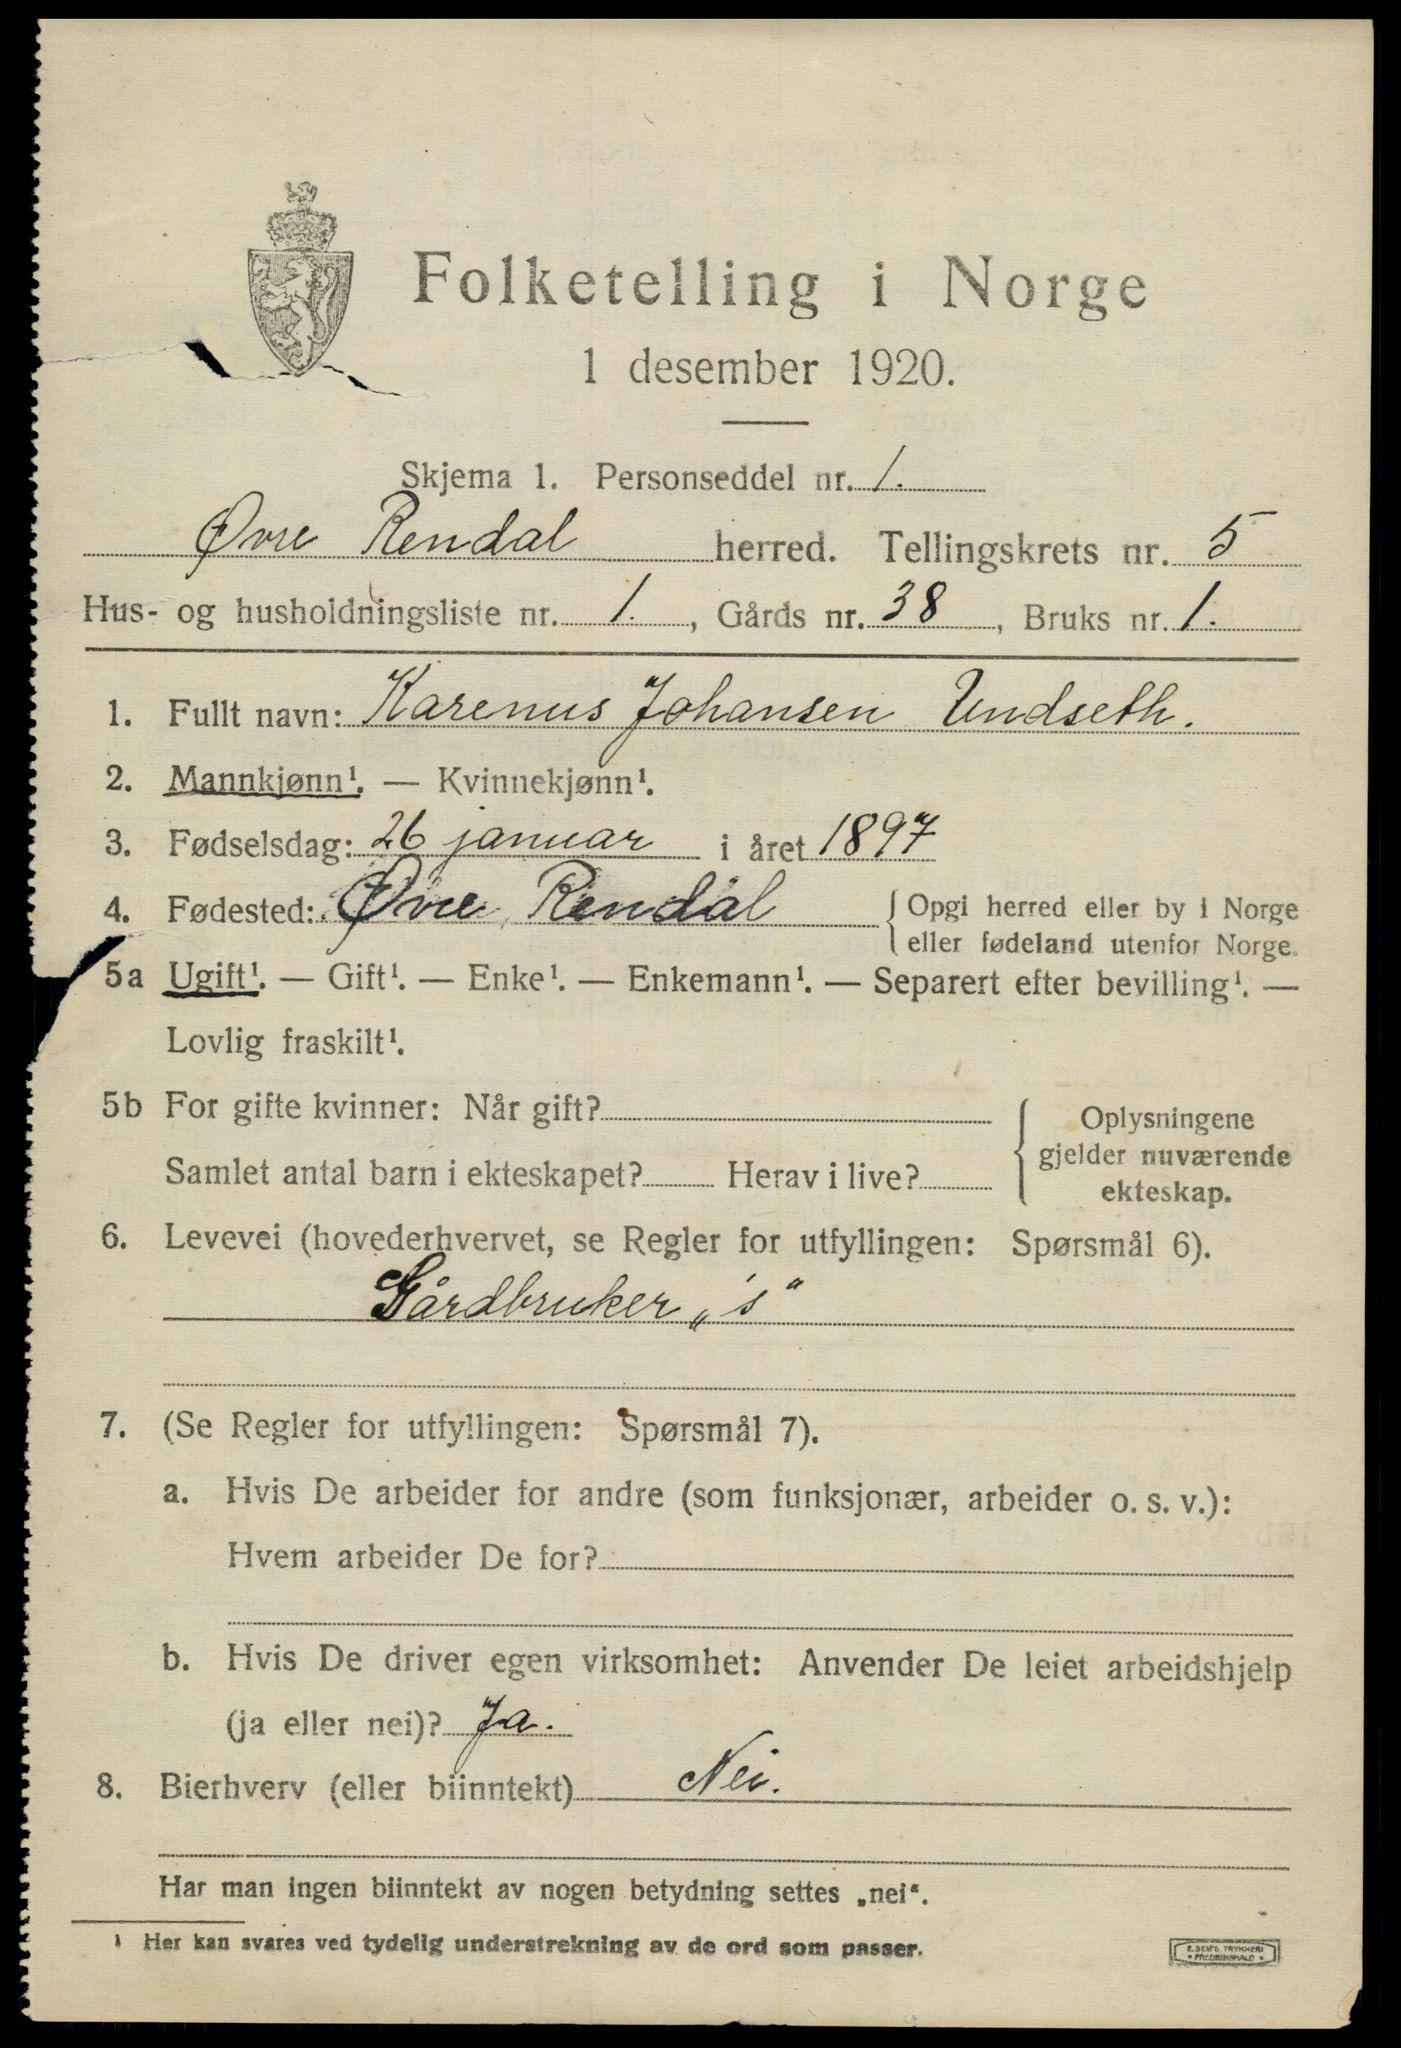 Folketelling i Norge
1 desember 1920.
Skjema 1. Personseddel nr. 1.
Øvre Rendal herred. Tellingskrets nr. 5
Hus- og husholdningsliste nr. 1., Gårds nr. 38, Bruks nr. 1.
1. Fullt navn: Karenus Johansen Undseth.
2. Mannkjønn¹. — Kvinnekjønn¹.
3. Fødselsdag: 26 januar i året 1897
4. Fødested: Øvre Rendal { Opgi herred eller by i Norge
eller fødeland utenfor Norge.
5a Ugift¹. — Gift¹. — Enke¹. — Enkemann¹. — Separert efter bevilling¹. —
Lovlig fraskilt¹.
5b For gifte kvinner: Når gift?
Samlet antal barn i ekteskapet? Herav i live?
{ Oplysningene
gjelder nuværende
ekteskap.
6. Levevei (hovederhvervet, se Regler for utfyllingen: Spørsmål 6).
Gårdbruker „s"
7. (Se Regler for utfyllingen: Spørsmål 7).
a. Hvis De arbeider for andre (som funksjonær, arbeider o. s. v.):
Hvem arbeider De for?
b. Hvis De driver egen virksomhet: Anvender De leiet arbeidshjelp
(ja eller nei)? Ja.
8. Bierhverv (eller biinntekt) Nei.
Har man ingen biinntekt av nogen betydning settes „nei“.
¹ Her kan svares ved tydelig understrekning av de ord som passer.
E. SEM'S TRYKKERI
* FREDRIKSHALD *